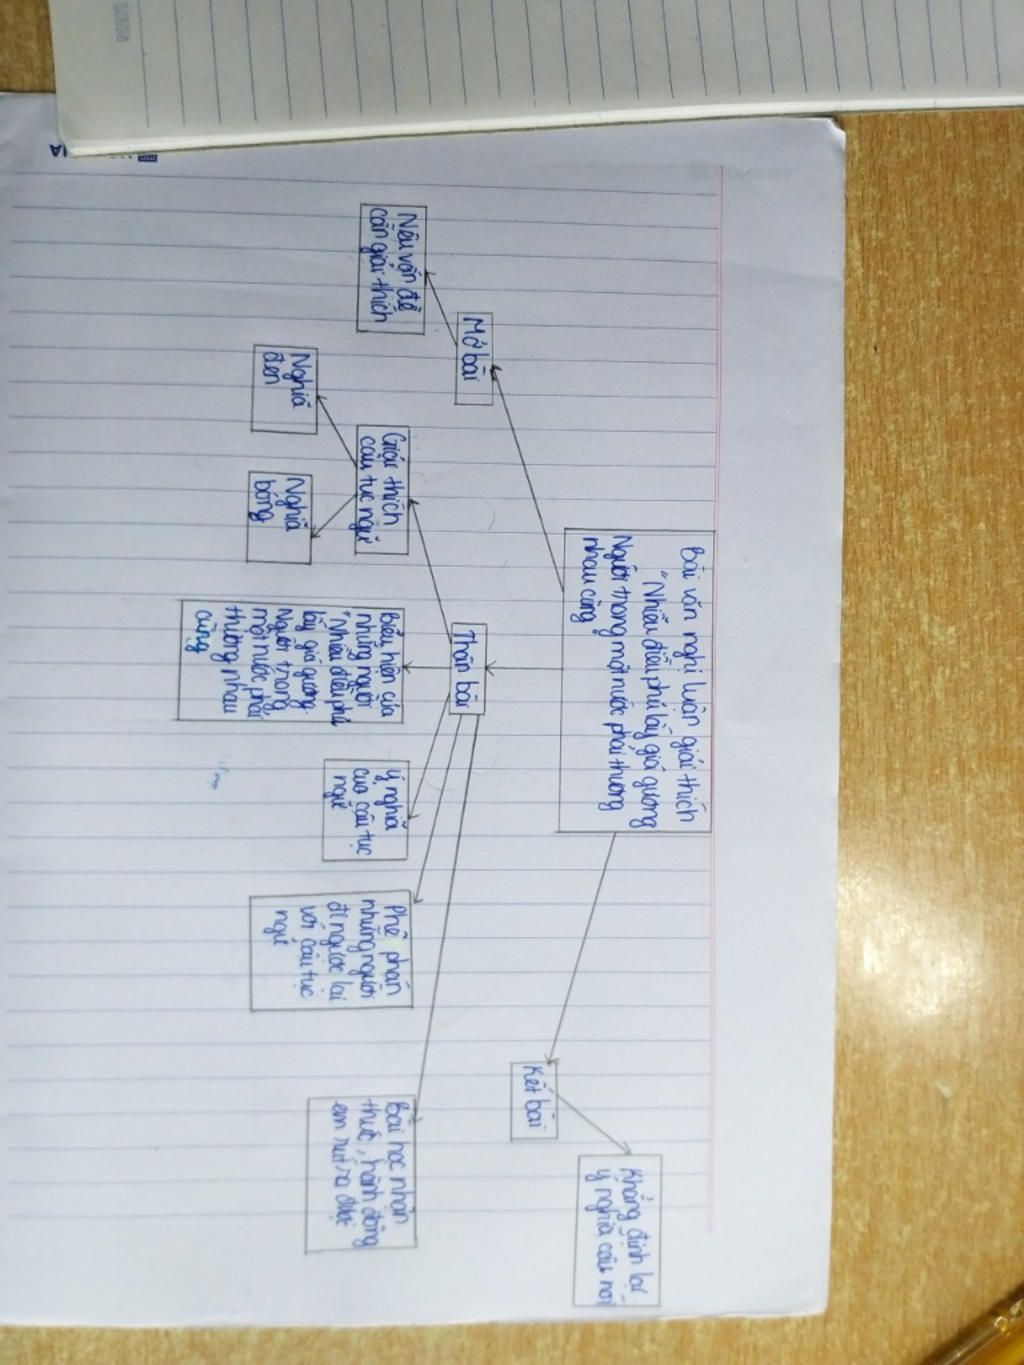 Bài văn nghị luận giải thích
"Nhiễu điều phủ lấy giá gương
Người trong một nước phải thương
nhau cùng
Mở bài
Nêu vấn đề
cần giải thích
Thân bài
Giải thích
câu tục ngữ
Nghĩa
đen
Nghĩa
bóng
Biểu hiện của
những người
"Nhiễu điều phủ
lấy giá gương
Người trong
một nước phải
thương nhau
cùng
Ý nghĩa
của câu tục
ngữ
Phê phán
những người
đi ngược lại
với câu tục
ngữ
Bài học nhận
thức, hành động
em rút ra được
Kết bài
Khẳng định lại
ý nghĩa câu nói